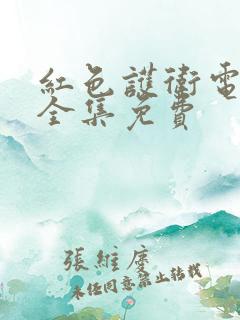 紅色護衛電
全集免費
張維慶
未經同意禁止轉載